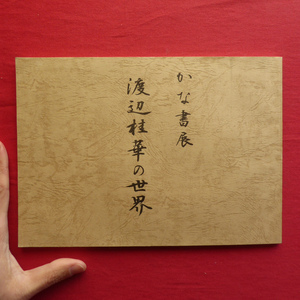 かな書展
渡辺桂華の世界